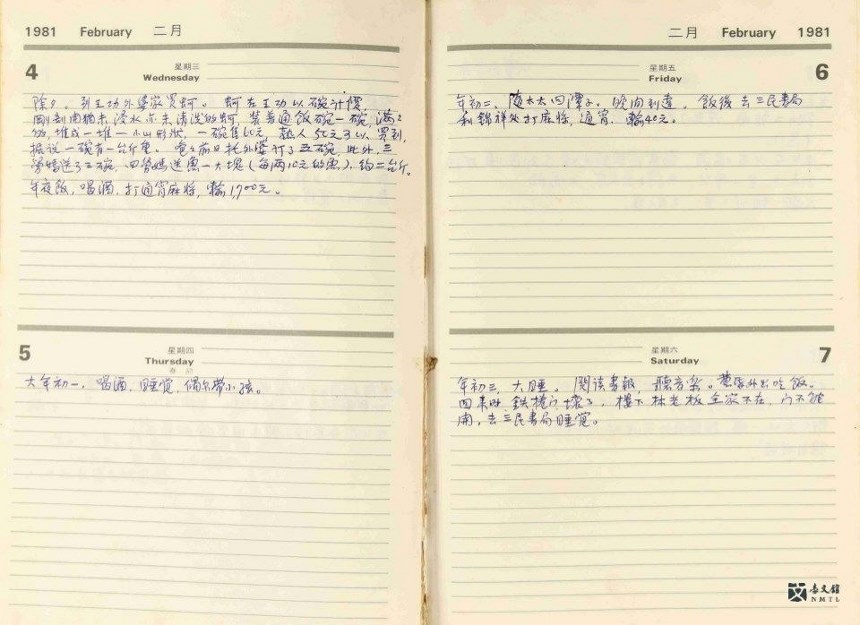 1981 February 二月
4
星期三
Wednesday
除夕，到王功外婆家買蚵。蚵在王功以碗計價，
剛剖南猶未浸水亦未清洗的蚵，裝普通飯碗一碗，滿
堆成一堆一小山形狀，一碗售60元，熟人50元可以買到，
據说一碗有一台斤重。前日托外婆訂了五碗，此外，三
舅媽送了三碗，四舅媽送魚一大塊（每兩10元的魚），約二台斤。
年夜飯，喝酒，打通宵麻將，輸1,700元。
5
星期四
Thursday
春節
大年初一，喝酒，睡覺，偶尔帶小孩。
二月 February 1981
星期五
Friday
6
年初二，隨太太回潭子。晚間到達，飯後去三民書局
利錦祥处打麻將，通宵，輸40元。
星期六
Saturday
7
年初三，大睡。閱读書報，聽音樂。黃昏外出吃飯。
回来時，鉄捲门壞了，樓下林老板全家不在，门不能
開，去三民書局睡覺。
臺文館
NMTL